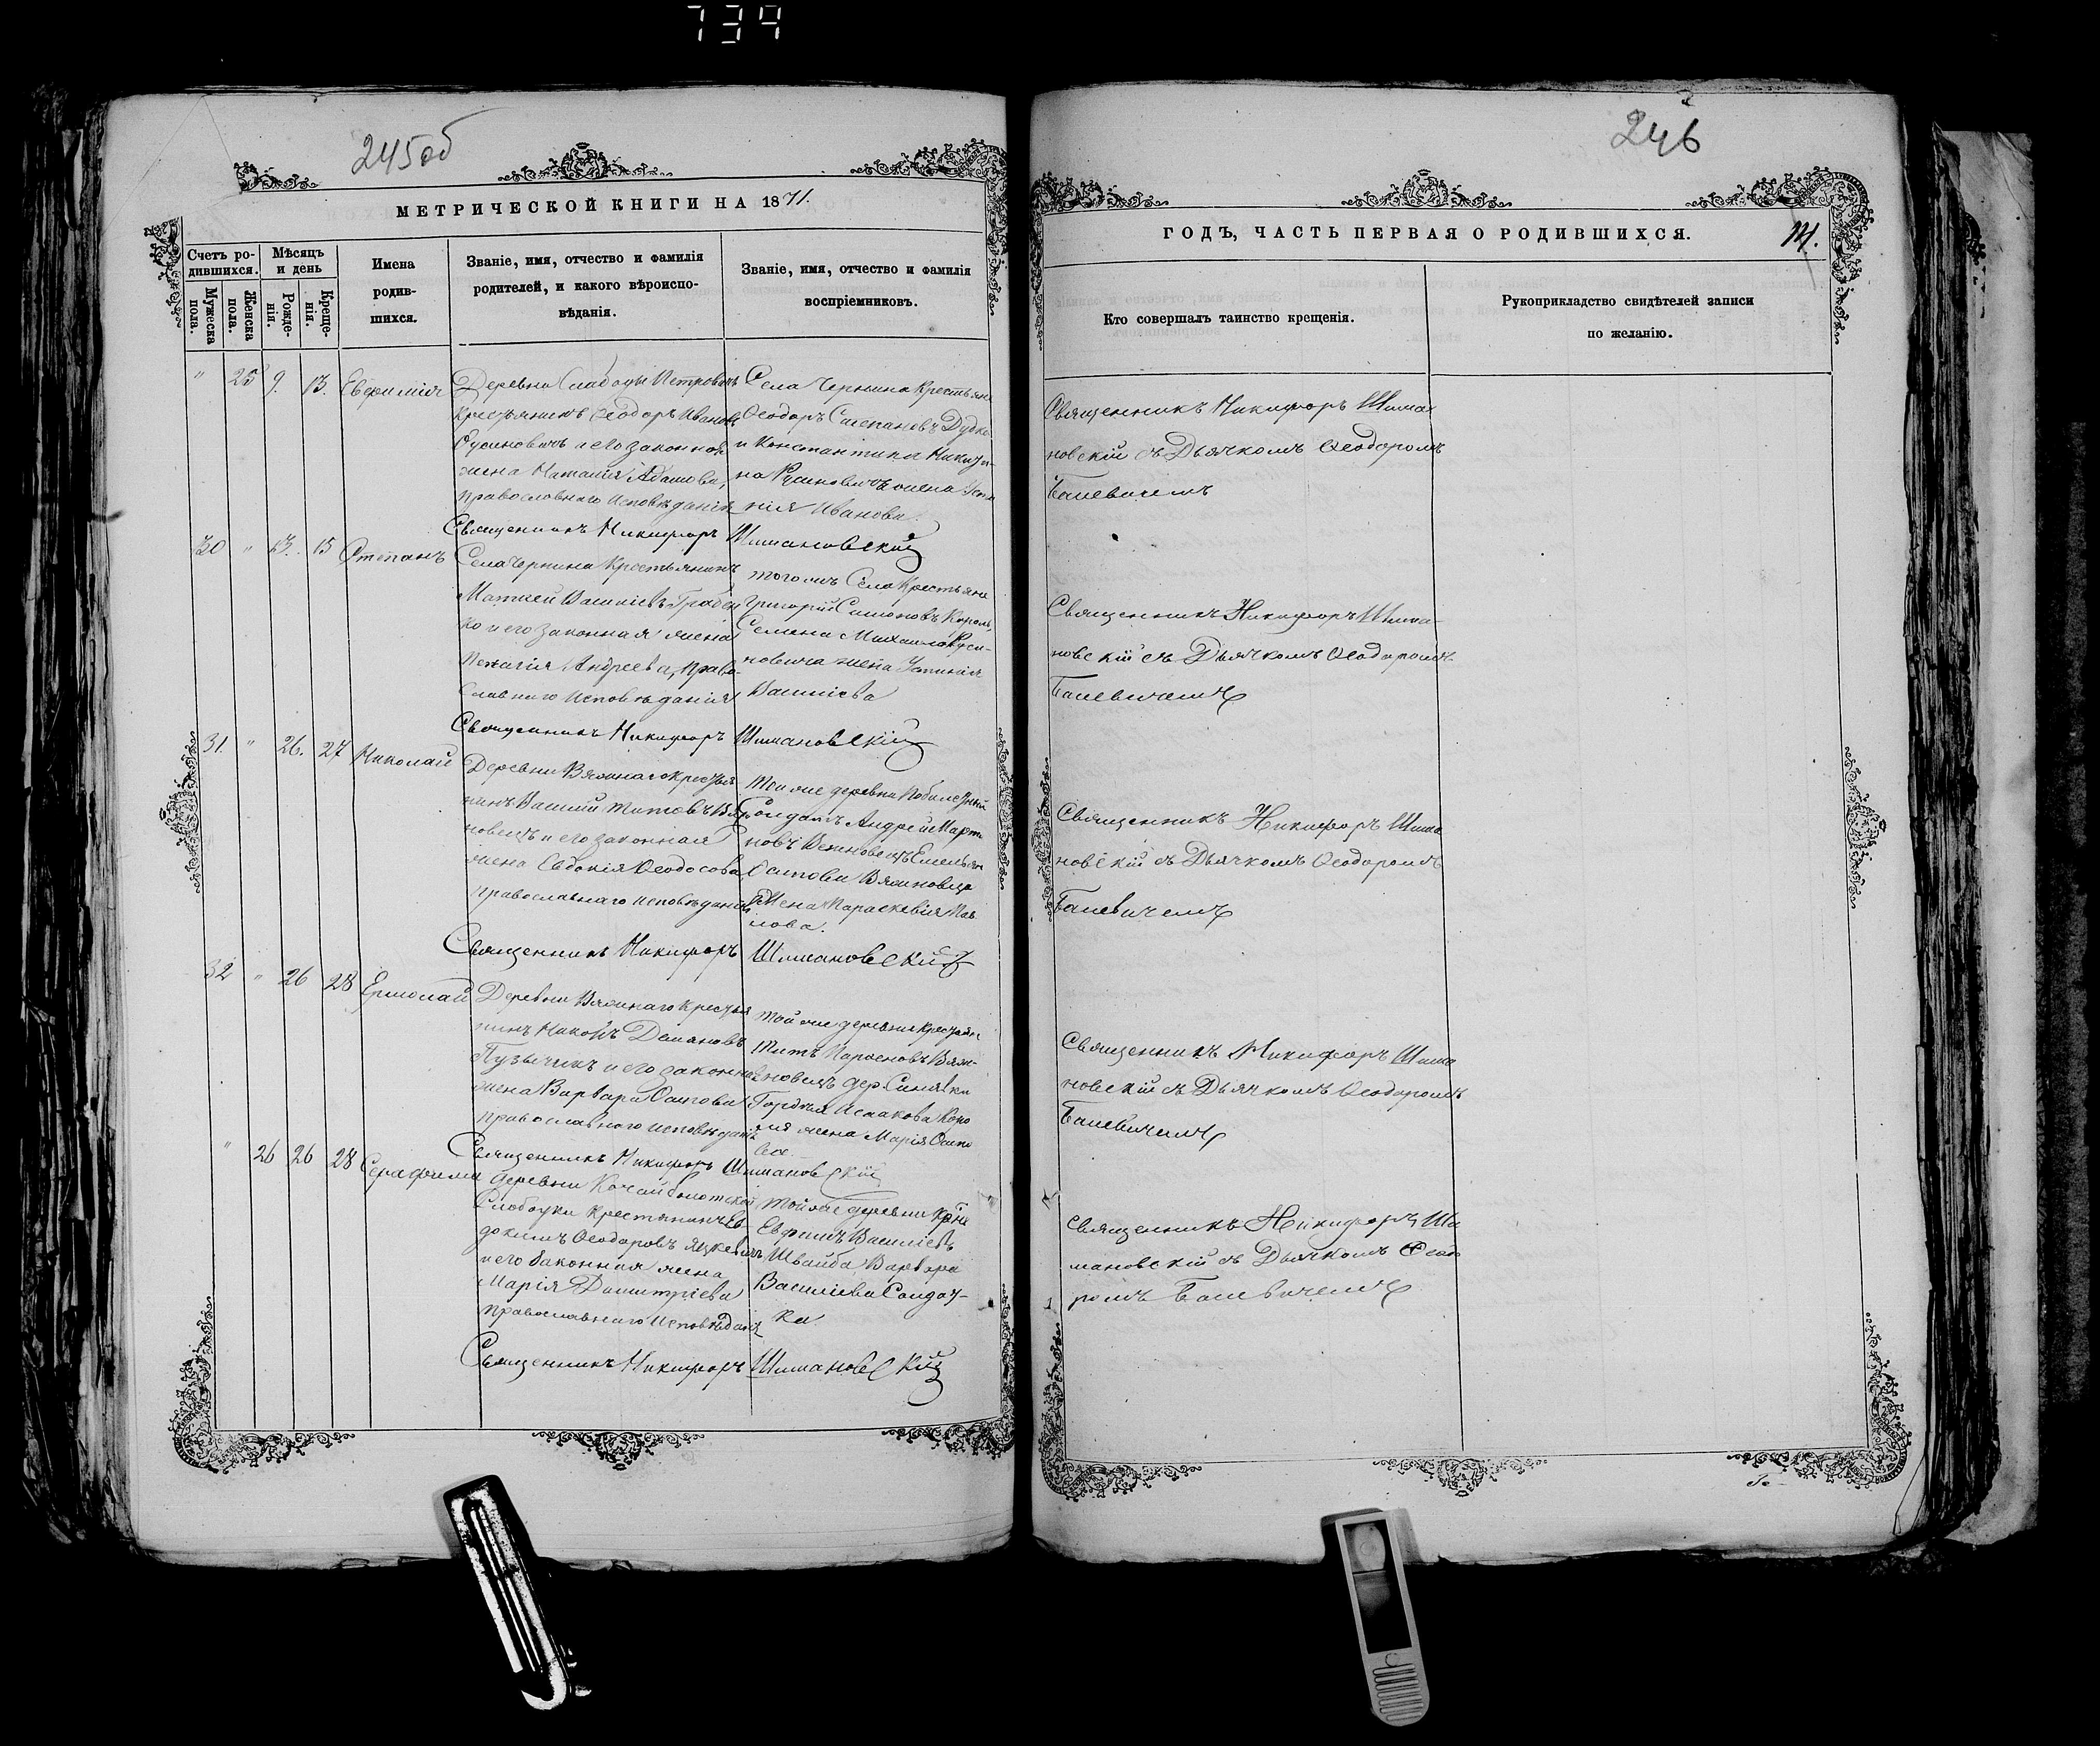 739
245об
МЕТРИЧЕСКОЙ КНИГИ НА 1871.
Счетъ родившихся.
Мужеска пола.
Женска пола.
Мѣсяцъ и день
Рожденія.
Крещенія.
Имена родившихся.
Званіе, имя, отчество и фамилія
родителей, и какого вѣроиспо-
вѣданія.
Званіе, имя, отчество и фамилія
воспріемниковъ.
" 25 9. 13. Евфимія
Деревни Слабоды
крестьянинъ Ѳеодоръ Ивановъ
и его законная
жена Наталія Адамова,
православнаго исповѣданія
Села Чернина крестьяне
Ѳеодоръ Степановъ Дудко
и Константина Никифо-
жена
нія Иванова.
Священникъ Никифоръ Шимановскій
30 " 13. 15 Степанъ
Села Чернина крестьянинъ
Матѳей Василіевъ
ко и его законная жена
Пелагія Андреева, право-
славнаго исповѣданія
тогожъ Села крестьяне
Григорій Симоновъ Король,
Семена Михаилова Руси-
новича жена Устинія
Василіева
Священникъ Никифоръ Шимановскій
31. " 26. 27 Николай
Деревни Вяжнаго крестья
нинъ Василій Титовъ Вяж
новецъ и его законная
жена Евдокія Ѳеодосова
православнаго исповѣданія
Той же деревни
Солдатъ Андрей Марты
новъ Вежновецъ Емельяна
Осипова Вяжновца
жена Параскевія Пав
лова.
Священникъ Никифоръ Шимановскій
32 " 26 28 Ермолай
Деревни Вяжнаго крестья
нинъ Даміановъ
Пузычикъ и его законная
жена Варвара Осипова
православнаго исповѣданія
Той же деревни крестьян
Титъ Парѳеновъ Вяж-
новецъ дер. Синявки
Гордѣя Исаакова Коро
ля жена Марія Осипо
ва.
Священникъ Никифоръ Шимановскій
" 26 26 28 Серафима
деревни
Слободки крестьянинъ Ев-
докимъ Ѳеодоровъ Яцкевичъ
и его законная жена
Марія Димитріева
православнаго исповѣдан
Той же деревни кр-не
Евфимъ Василіевъ
Швайба, Варвара
Василіева Солдат-
ка
Священникъ Никифоръ Шимановскій
246
ГОДЪ, ЧАСТЬ ПЕРВАЯ О РОДИВШИХСЯ.
Кто совершалъ таинство крещенія.
Рукоприкладство свидѣтелей записи
по желанію.
Священникъ Никифоръ Шима
новскій съ Дьячкомъ Ѳеодоромъ
Баневичемъ
Священникъ Никифоръ Шима-
новскій съ Дьячкомъ Ѳеодоромъ
Баневичемъ
Священникъ Никифоръ Шима
новскій съ Дьячкомъ Ѳеодоромъ
Баневичемъ
Священникъ Никифоръ Шима
новскій съ Дьячкомъ Ѳеодоромъ
Баневичемъ
Священникъ Никифоръ Ши
мановскій съ Дьячкомъ Ѳеодо
ромъ Баневичемъ